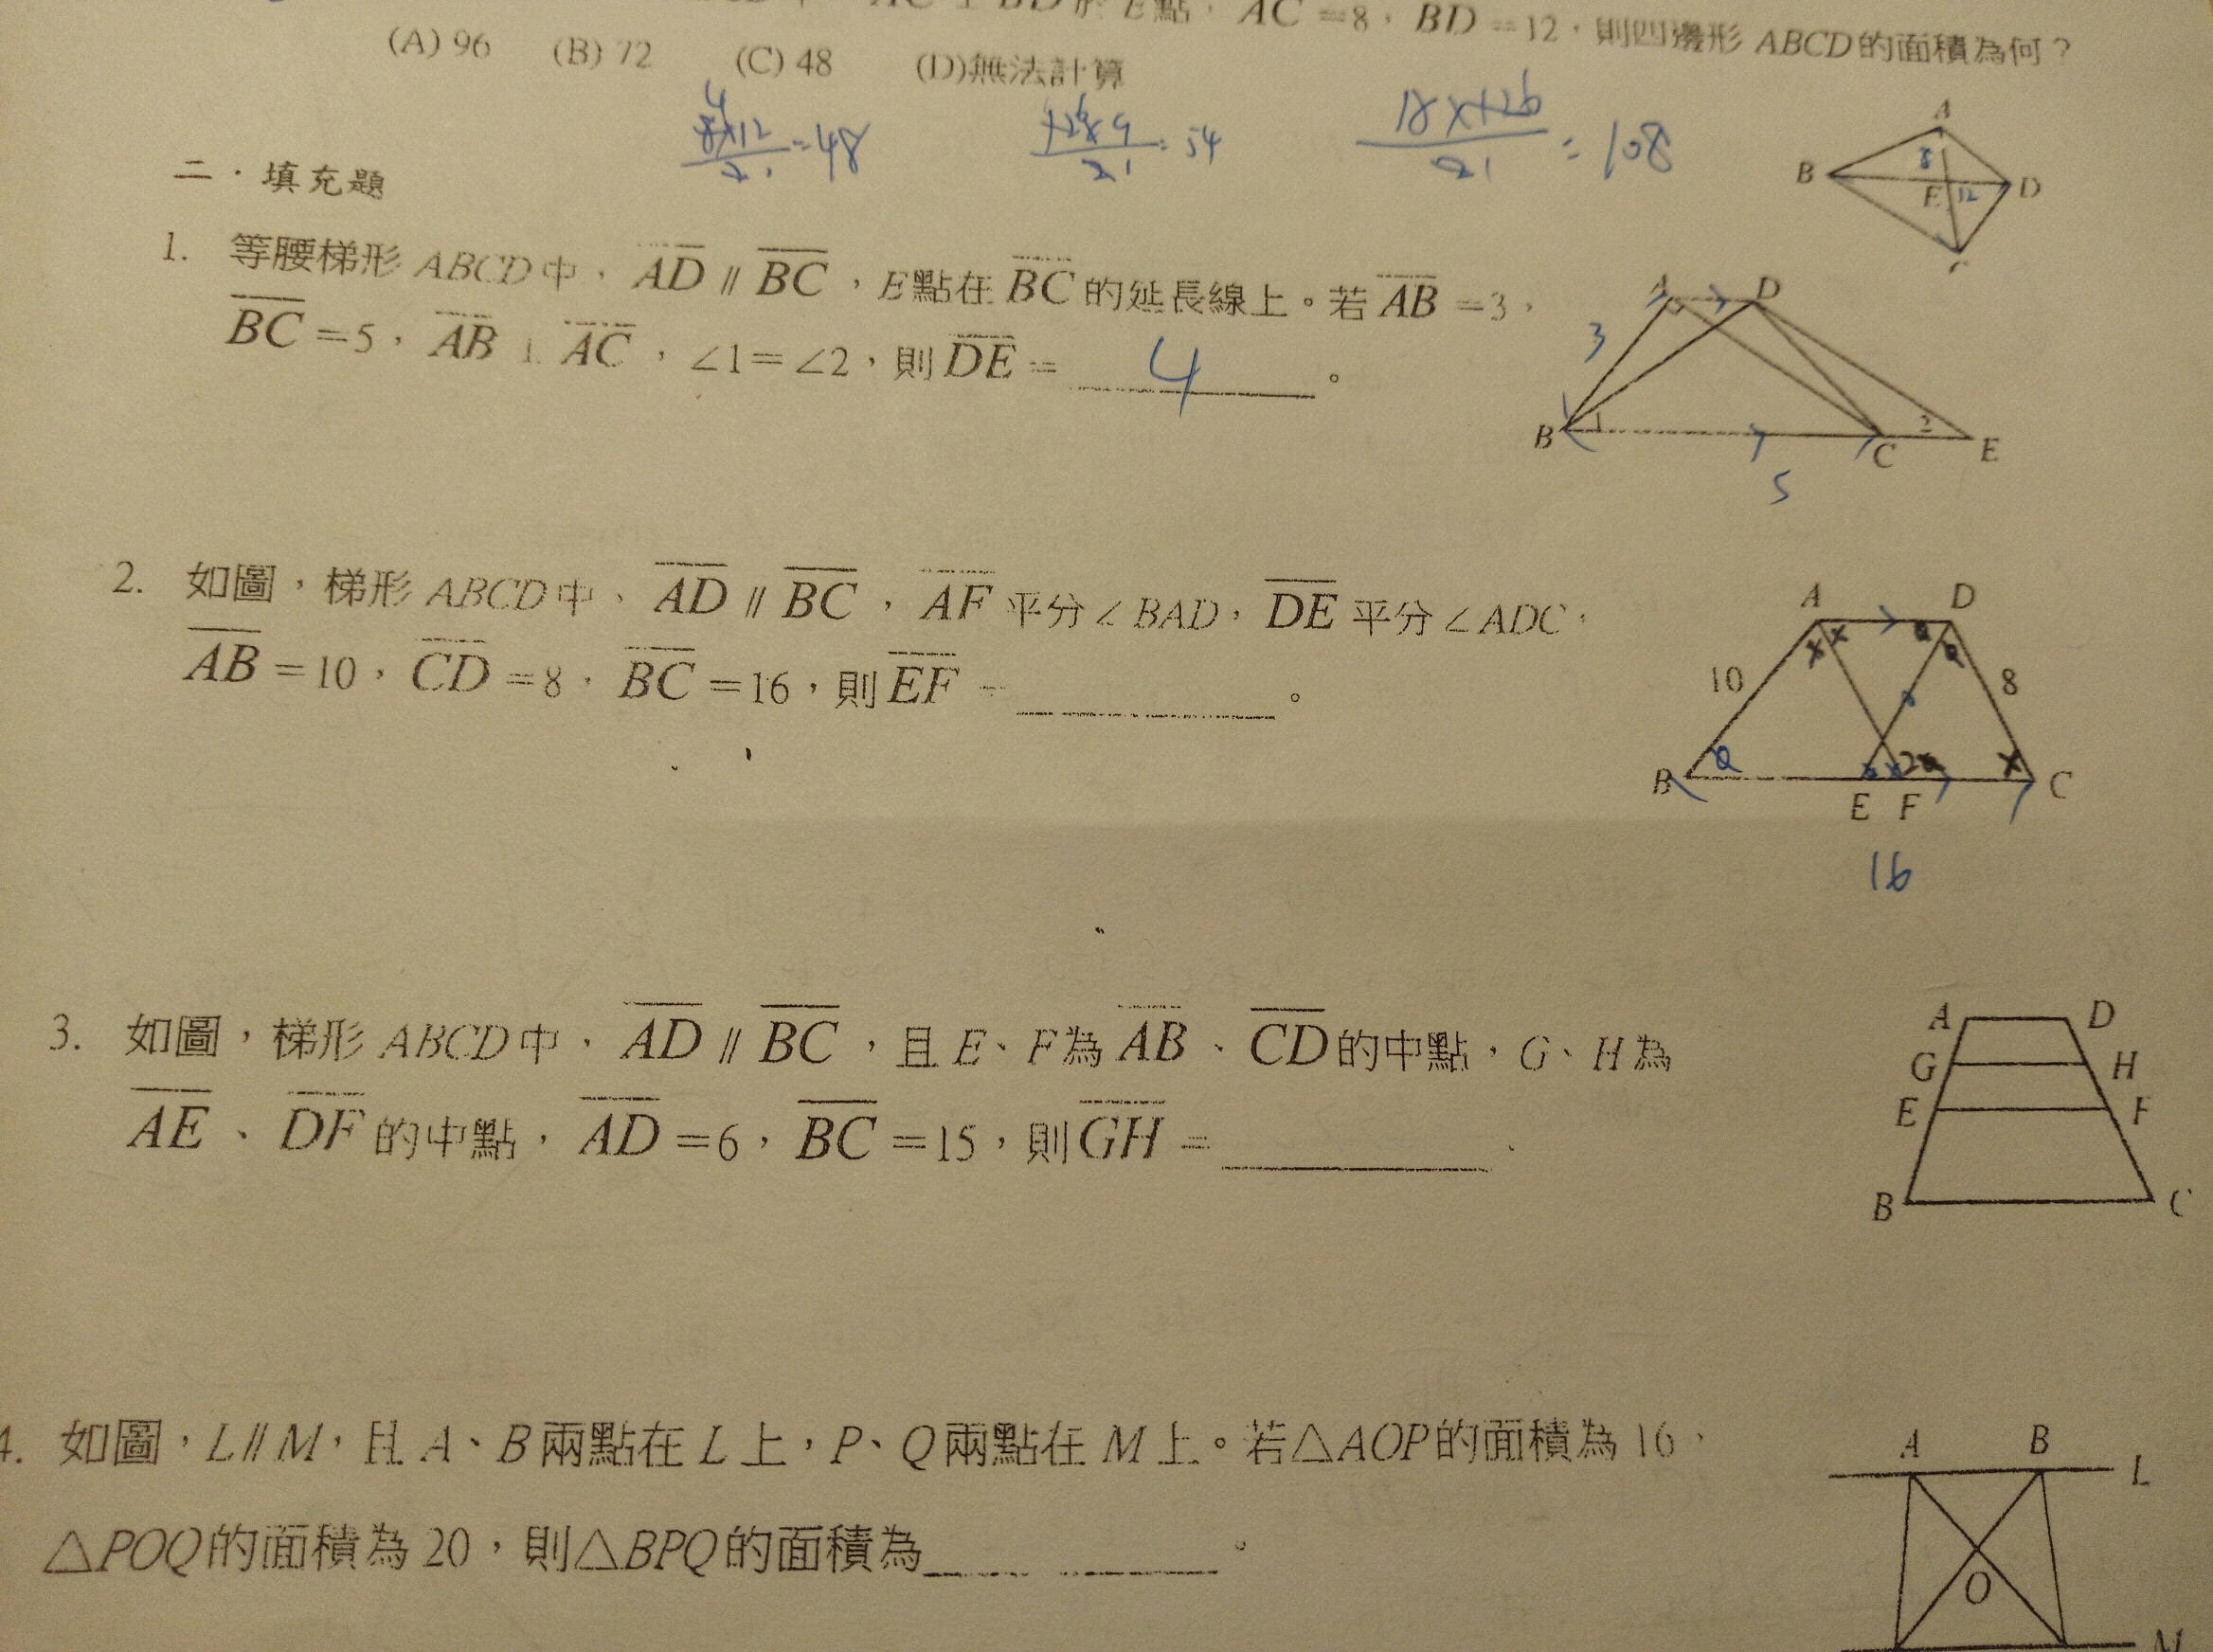 BD 於 E 點，AC = 8，BD = 12，則四邊形 ABCD 的面積為何？
(A) 96 (B) 72 (C) 48 (D)無法計算
8×12/2 = 48
= 54
= 108
A
8
B
E
12
D
C
二．填充題
1. 等腰梯形 ABCD 中，AD // BC，E 點在 BC 的延長線上。若 AB = 3，
BC = 5，AB ⊥ AC，∠1 = ∠2，則 DE = 4 。
A D
3
B 1 2 C E
5
2. 如圖，梯形 ABCD 中，AD // BC，AF 平分∠BAD，DE 平分∠ADC，
AB = 10，CD = 8，BC = 16，則 EF = 。
A D
10 8
B E F C
16
3. 如圖，梯形 ABCD 中，AD // BC，且 E、F 為 AB、CD 的中點，G、H 為
AE、DF 的中點，AD = 6，BC = 15，則 GH =
A D
G H
E F
B C
4. 如圖，L // M，且 A、B 兩點在 L 上，P、Q 兩點在 M 上。若△AOP 的面積為 16，
△POQ 的面積為 20，則△BPQ 的面積為 。
A B L
O
M